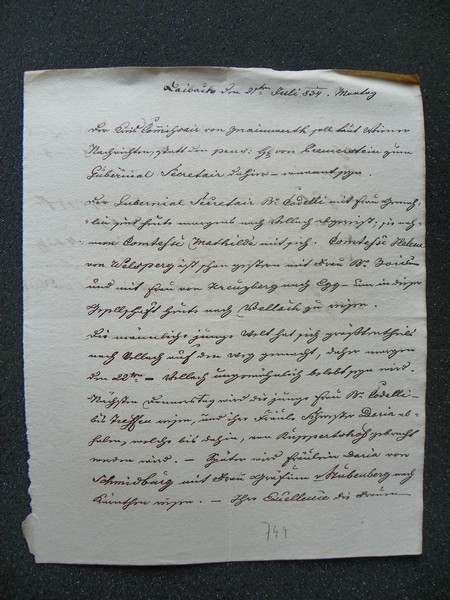 Laibach den 21ten Juli 834. Montag
Der Kreis Commißair von Mainwerth soll laut Wiener
Nachrichten, statt den von zum
Gubernial Secretair dahier ernannt seyn.
Der Gubernial Secretair Br. Codelli mit Frau Gemah-
lin sind heute morgens nach Vellach abgereist; sie neh-
men Comtesse Mathilde mit sich. Comtesse Helene
von Welsperg ist schon gestern mit Frau Br.
und mit Frau von Kreuzberg nach Egg um in dieser
Gesellschaft heute nach Vellach zu reisen.
Die männliche junge Welt hat sich größtentheils
nach Vellach auf den Weg gemacht, daher morgen
den 22ten Vellach ungewöhnlich belebt seyn wird.
Nächsten Donnerstag wird die junge Frau Br. Codelli
bis reisen, und ihre Fräule Schwester Daria ab-
holen, welche bis dahin, von Ruppertshof gebracht
werden wird. — Später wird Fräulein Daria von
Schmidburg mit Frau Gräfinn v Stubenberg nach
Kärnthen reisen. — Ihre Excellenz die Frauen
744